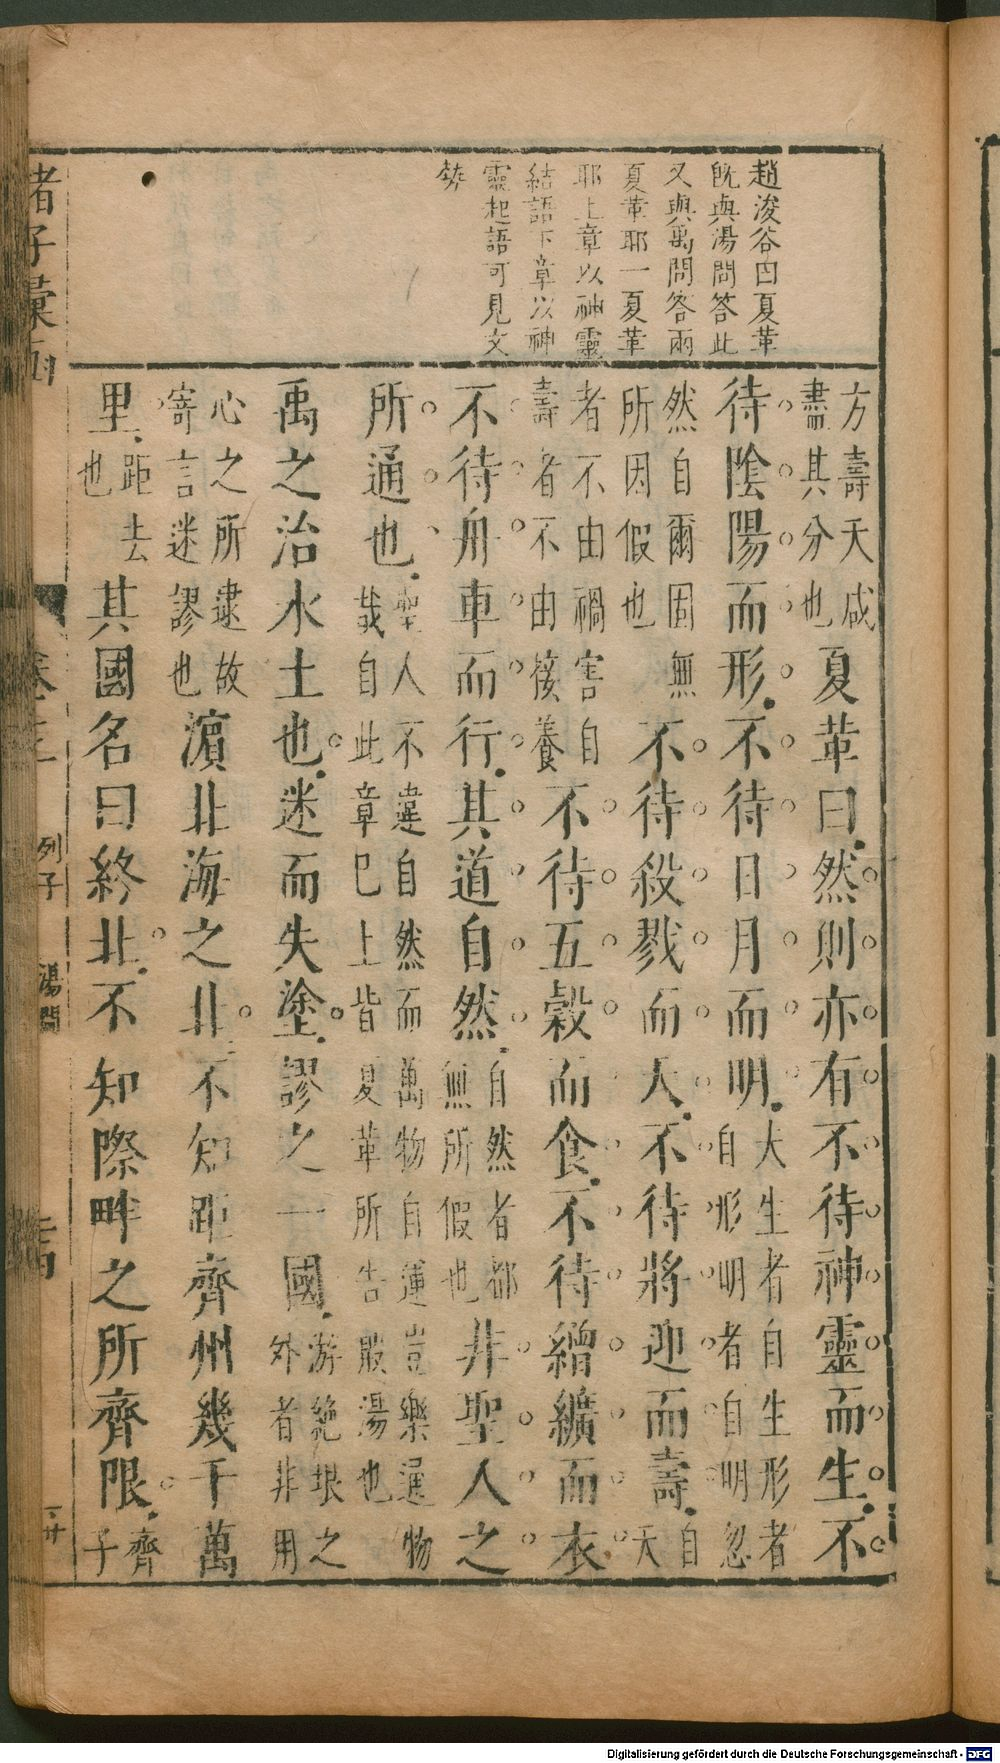 趙浚谷曰夏革
既與湯問答此
又與禹問答兩
夏革耶一夏革
耶上章以神靈
結語下章以神
靈起語可見文
勢
方壽夭咸盡其分也夏革曰然則亦有不待神靈而生不
待陰陽而形不待日月而明夫生者自生形者自形明者自明忽
然自爾固無所因假也不待殺戮而夭不待將迎而壽自夭
者不由禍害自壽者不由接養不待五穀而食不待繒纊而衣
不待舟車而行其道自然自然者都無所假也非聖人之
所通也聖人不違自然而萬物自運豈樂通物哉自此章已上皆夏革所告殷湯也
禹之治水土也迷而失塗謬之一國游絶垠之外者非用
心之所逮故寄言迷謬也濵北海之北不知距齊州幾千萬
里距去也其國名曰終北不知際畔之所齊限齊子
諸子彙函
列子
湯問
Digitalisierung gefördert durch die Deutsche Forschungsgemeinschaft - DFG